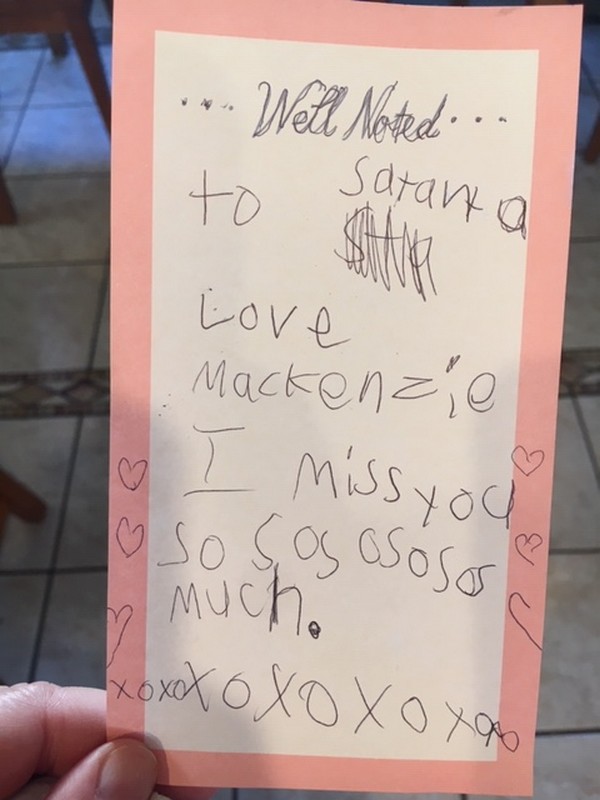 .... Well Noted...
to
Love
Mackenzie
I Miss you
So Sos ososos
Much.
xoxoXoXoXoxoo